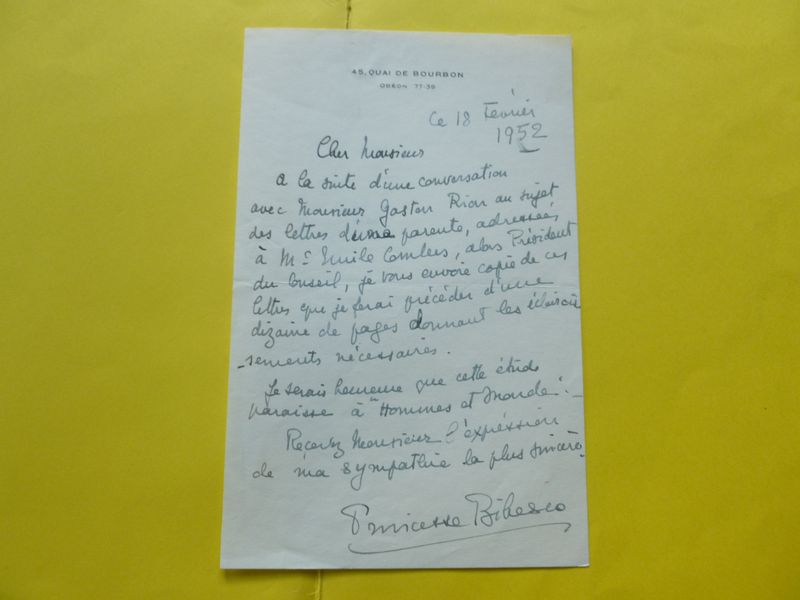 45, QUAI DE BOURBON
ODÉON 77-39
Ce 18 Février
1952
Cher Monsieur
A la suite d'une conversation
avec Monsieur Gaston Riou au sujet
des lettres d'une parente, adressées
à Mr Emile Combes, alors Président
du Conseil, je vous envoie copie de ces
lettres que je ferai précéder d'une
dizaine de pages donnant les éclaircis
-sements nécessaires.
Je serais heureuse que cette étude
paraisse à "Hommes et Monde".
Recevez Monsieur l'expression
de ma sympathie la plus sincère.
Princesse Bibesco